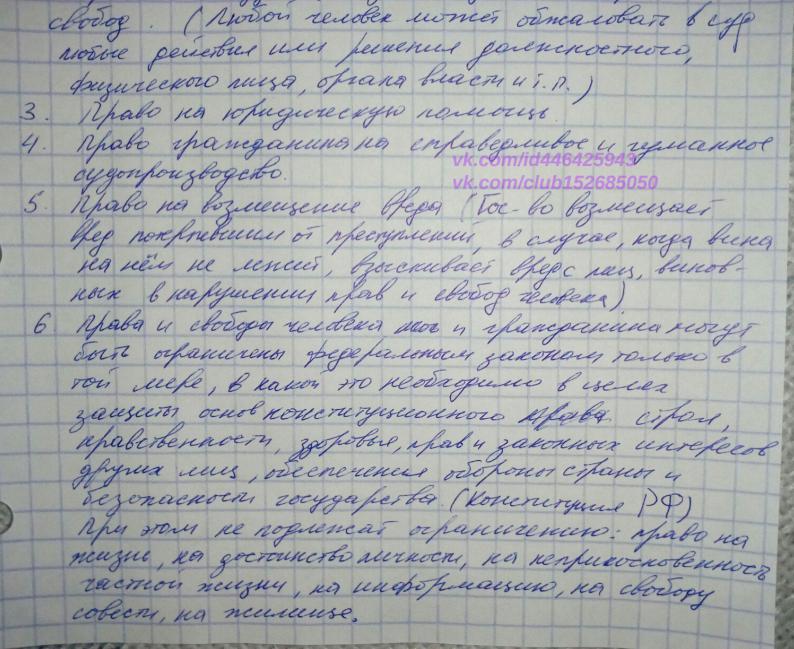 свобод. (Любой человек может обжаловать в суд
любые действия или решения должностного,
физического лица, органа власти и т.п.)
3. Право на юридическую помощь.
4. Право гражданина на справедливое и гуманное
vk.com/id446425943
судопроизводство.
vk.com/club152685050
5. Право на возмещение вреда (Гос-во возмещает
вред потерпевшим от преступлений, в случае, когда вина
на нём не лежит, взыскивает вред с лиц, винов-
ных в нарушении прав и свобод человека)
6 Права и свободы человека и гражданина могут
быть ограничены федеральным законом только в
той мере, в какой это необходимо в целях
защиты основ конституционного права строя,
нравственности, здоровья, прав и законных интересов
других лиц, обеспечения обороны страны и
безопасности государства. (Конституция РФ)
При этом не подлежат ограничению: право на
жизнь, на достоинство личности, на неприкосновенность
частной жизни, на информацию, на свободу
совести, на жилище.